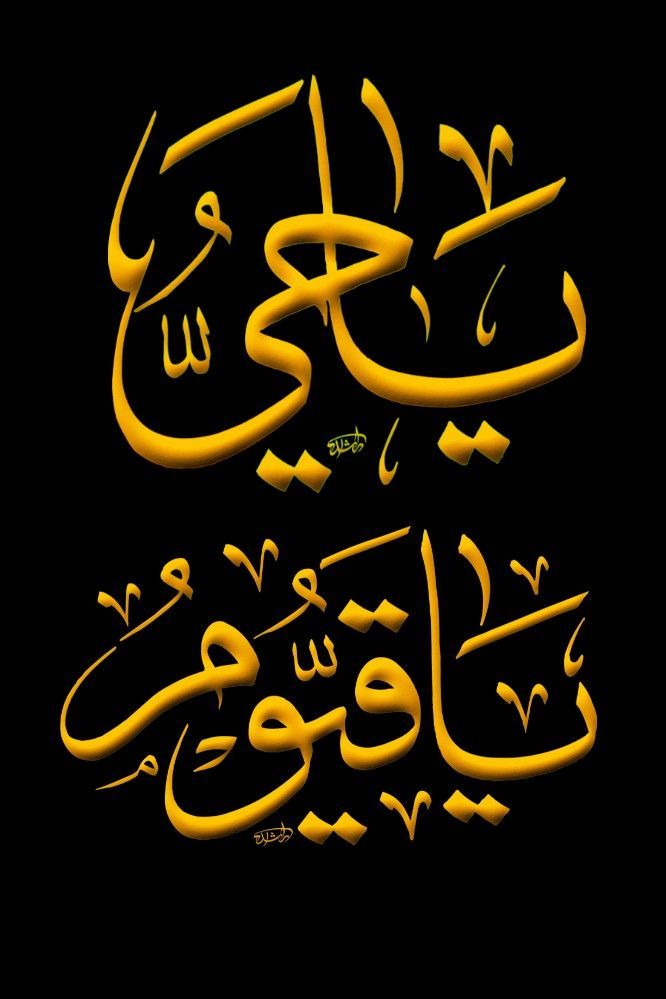 يَا حَيُّ
يَا قَيُّومُ